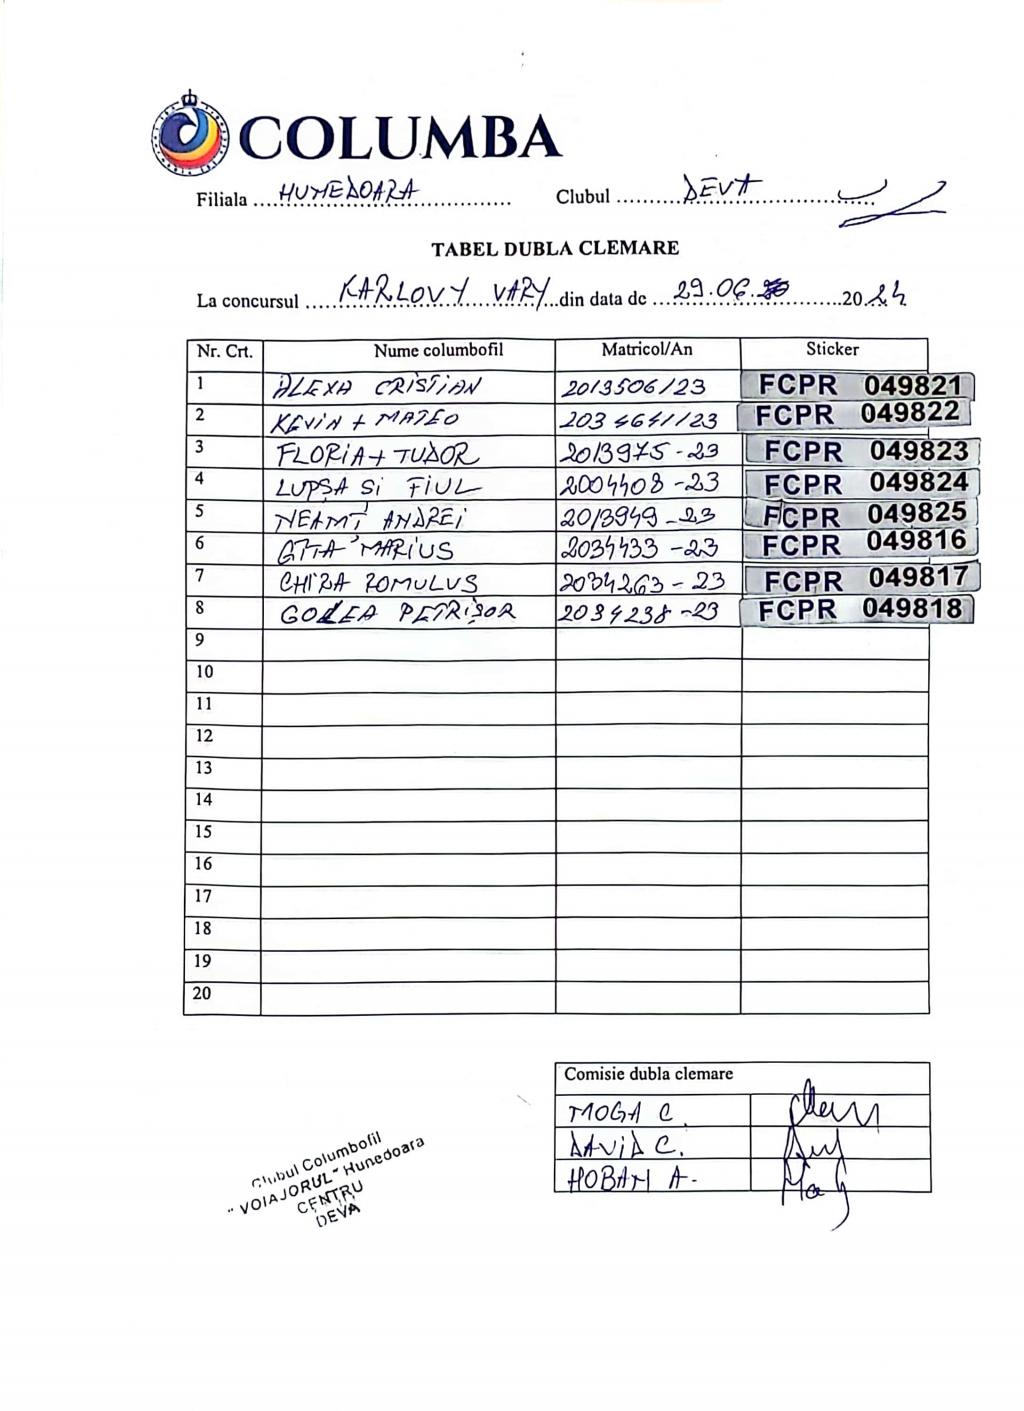 COLUMBA
Filiala ....HUNEDOARA.................. Clubul ..........DEVA..................
TABEL DUBLA CLEMARE
La concursul ....KARLOVY VARY...din data de ...29.06.............2024
Nr. Crt. Nume columbofil Matricol/An Sticker
1 ALEXA CRISTIAN 2013506/23 FCPR 049821
2 KEVIN + MATEO 2034641/23 FCPR 049822
3 FLORIA + TUDOR 2013975-23 FCPR 049823
4 LUPȘA SI FIUL 2004408-23 FCPR 049824
5 NEAMȚ ANDREI 2013949-23 FCPR 049825
6 MARIUS 2034433-23 FCPR 049816
7 CHIRA ROMULUS 2034263-23 FCPR 049817
8 GOLEA PETRIȘOR 2034238-23 FCPR 049818
9
10
11
12
13
14
15
16
17
18
19
20
Comisie dubla clemare
MOGA C.
DAVID C.
HOBAN A-
Clubul Columbofil
"VOIAJORUL" Hunedoara
CENTRU
DEVA